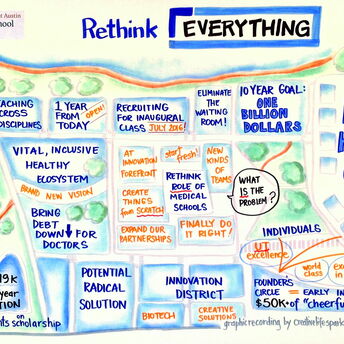 t Austin
chool
Rethink EVERYTHING
EACHING
CROSS
DISCIPLINES
1 YEAR
FROM
TODAY
OPEN!
RECRUITING
FOR INAUGURAL
CLASS JULY 2016!
ELIMINATE
THE
WAITING
ROOM!
10 YEAR GOAL:
ONE
BILLION
DOLLARS
VITAL, INCLUSIVE
HEALTHY
ECOSYSTEM
BRAND NEW VISION
BRING
DEBT
DOWN FOR
DOCTORS
AT
INNOVATION
FOREFRONT
start
fresh!
NEW
KINDS
OF
TEAMS
CREATE
THINGS
from
SCRATCH
RETHINK
ROLE OF
MEDICAL
SCHOOLS
EXPAND OUR
PARTNERSHIPS
FINALLY DO
IT RIGHT!
WHAT
IS THE
PROBLEM?
INDIVIDUALS
UT
excellence
world
class
FOUNDER'S
CIRCLE = EARLY IN
$50K+ of "cheerfu
19K
year
ON
nts on scholarship
POTENTIAL
RADICAL
SOLUTION
INNOVATION
DISTRICT
BIOTECH
CREATIVE
SOLUTIONS
graphic recording by creativelifespark